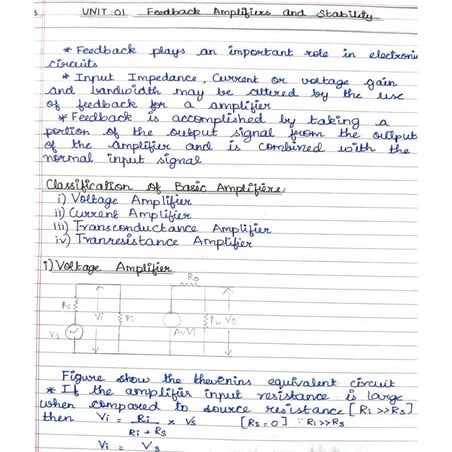 UNIT:01 Feedback Amplifiers and Stability
* Feedback plays an important role in electronic
circuits
* Input Impedance, Current or voltage gain
and bandwidth may be altered by the use
of feedback for a amplifier
* Feedback is accomplished by taking a
portion of the output signal from the output
of the amplifier and is combined with the
normal input signal
Classification of Basic Amplifiers:
i) Voltage Amplifier
ii) Current Amplifier
iii) Transconductance Amplifier
iv) Tranresistance Amplifier
i) Voltage Amplifier
Ro
Rs Vi Ri RL Vo
Vs AvVi
Figure show the thevenins equivalent circuit
* If the amplifier input resistance is large
when compared to source resistance [Ri >>Rs]
then Vi = Ri / Ri + Rs × Vs [Rs = 0] ∵ Ri>>Rs
Vi = Vs